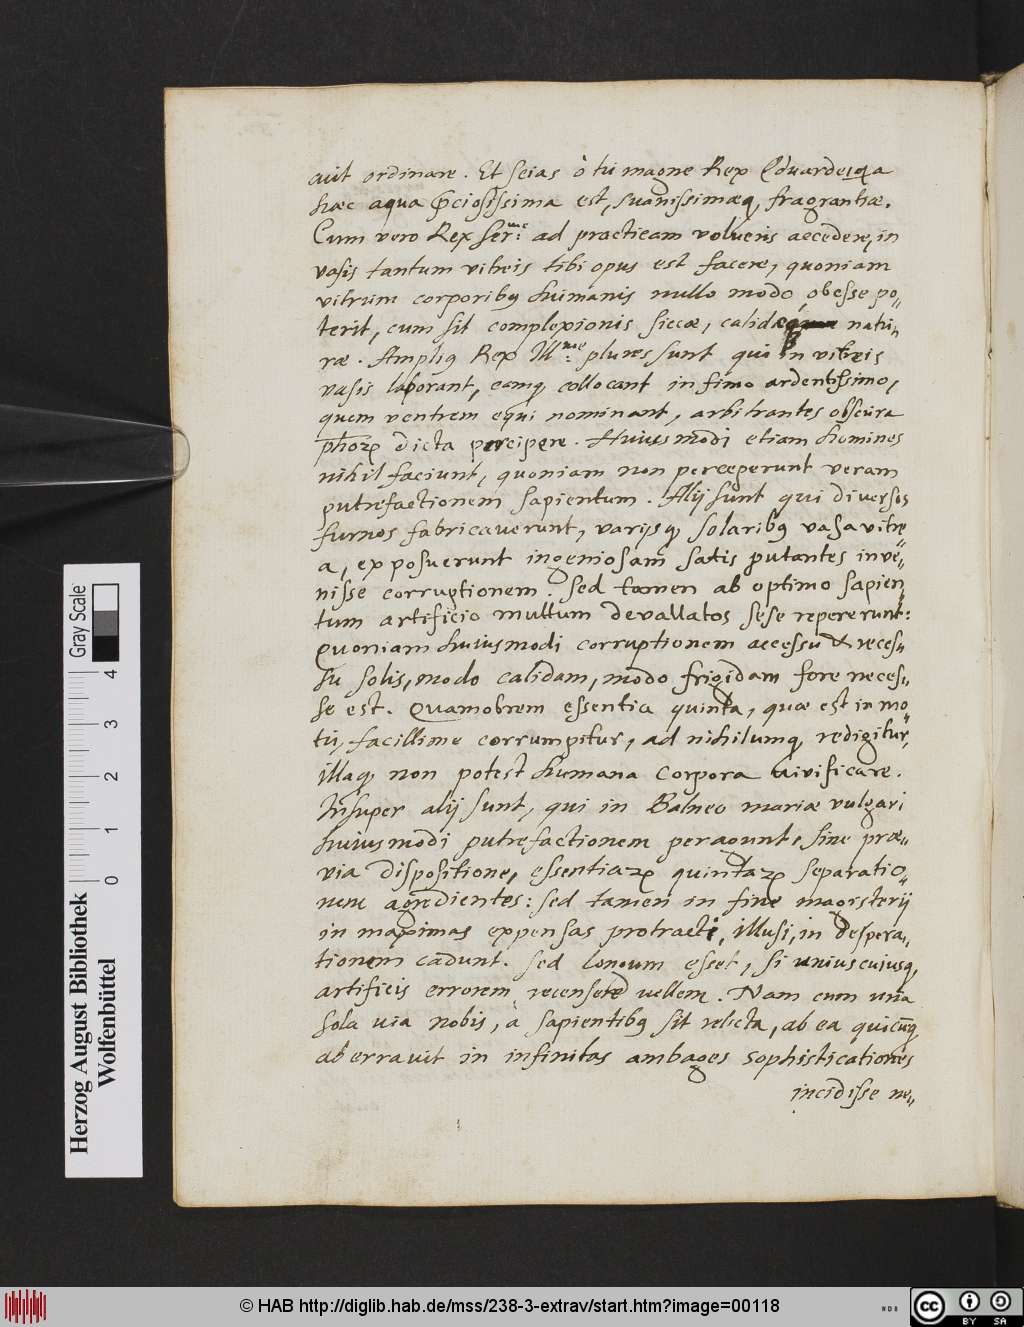 auit ordinare. Et scias ò tu magne Rex Eduarde, qa
hæc aqua p̄ciosissima est, suauissimæq, fragrantiæ.
Cum vero Rex Ser.me ad practicam volueris accedere, in
vasis tantum vitreis tibi opus est facere, quoniam
vitrum corporibq humanis nullo modo obesse po„
terit, cum sit complexionis siccæ, calidæq natu„
ræ. Ampliq Rex Ill.me plures sunt qui in vitreis
vasis laborant, eamq collocant in fimo ardentissimo,
quem ventrem equi nominant, arbitrantes obscura
phorꝝ dicta percipere. Huiusmodi etiam homines
nihil faciunt, quoniam non perceperunt veram
putrefactionem sapientum. Alij sunt qui diversos
furnos fabricaverunt, varijsq, solaribq vasa vitre„
a, exposuerunt ingeniosam satis putantes inve„
nisse corruptionem. Sed tamen ab optimo sapien„
tum artificio multum devallatos sese repererunt:
Quoniam huiusmodi corruptionem accessu & reces„
su solis, modo calidam, modo frigidam fore neces„
se est. Quamobrem essentia quinta, quæ est in mo„
tu, facillime corrumpitur, ad nihilumq, redigitur,
illaq, non potest humana corpora vivificare.
Insuper alij sunt, qui in Balneo mariæ vulgari
huiusmodi putrefactionem peragunt, sine præ„
via dispositione, essentiaꝝ quintaꝝ separatio„
nem agredientes: sed tamen in fine magisterij
in maximas expensas protracti, illusi, in despera„
tionem cadunt. Sed longum esset, si uniuscuiusq,
artificis errorem recensere vellem. Nam cum una
sola via nobis, à sapientibq sit relicta, ab ea quicūq
aberravit in infinitas ambages sophisticationes
incidisse ne„
Herzog August Bibliothek
Wolfenbüttel
Gray Scale
0 1 2 3 4
© HAB http://diglib.hab.de/mss/238-3-extrav/start.htm?image=00118
NDB
cc BY SA